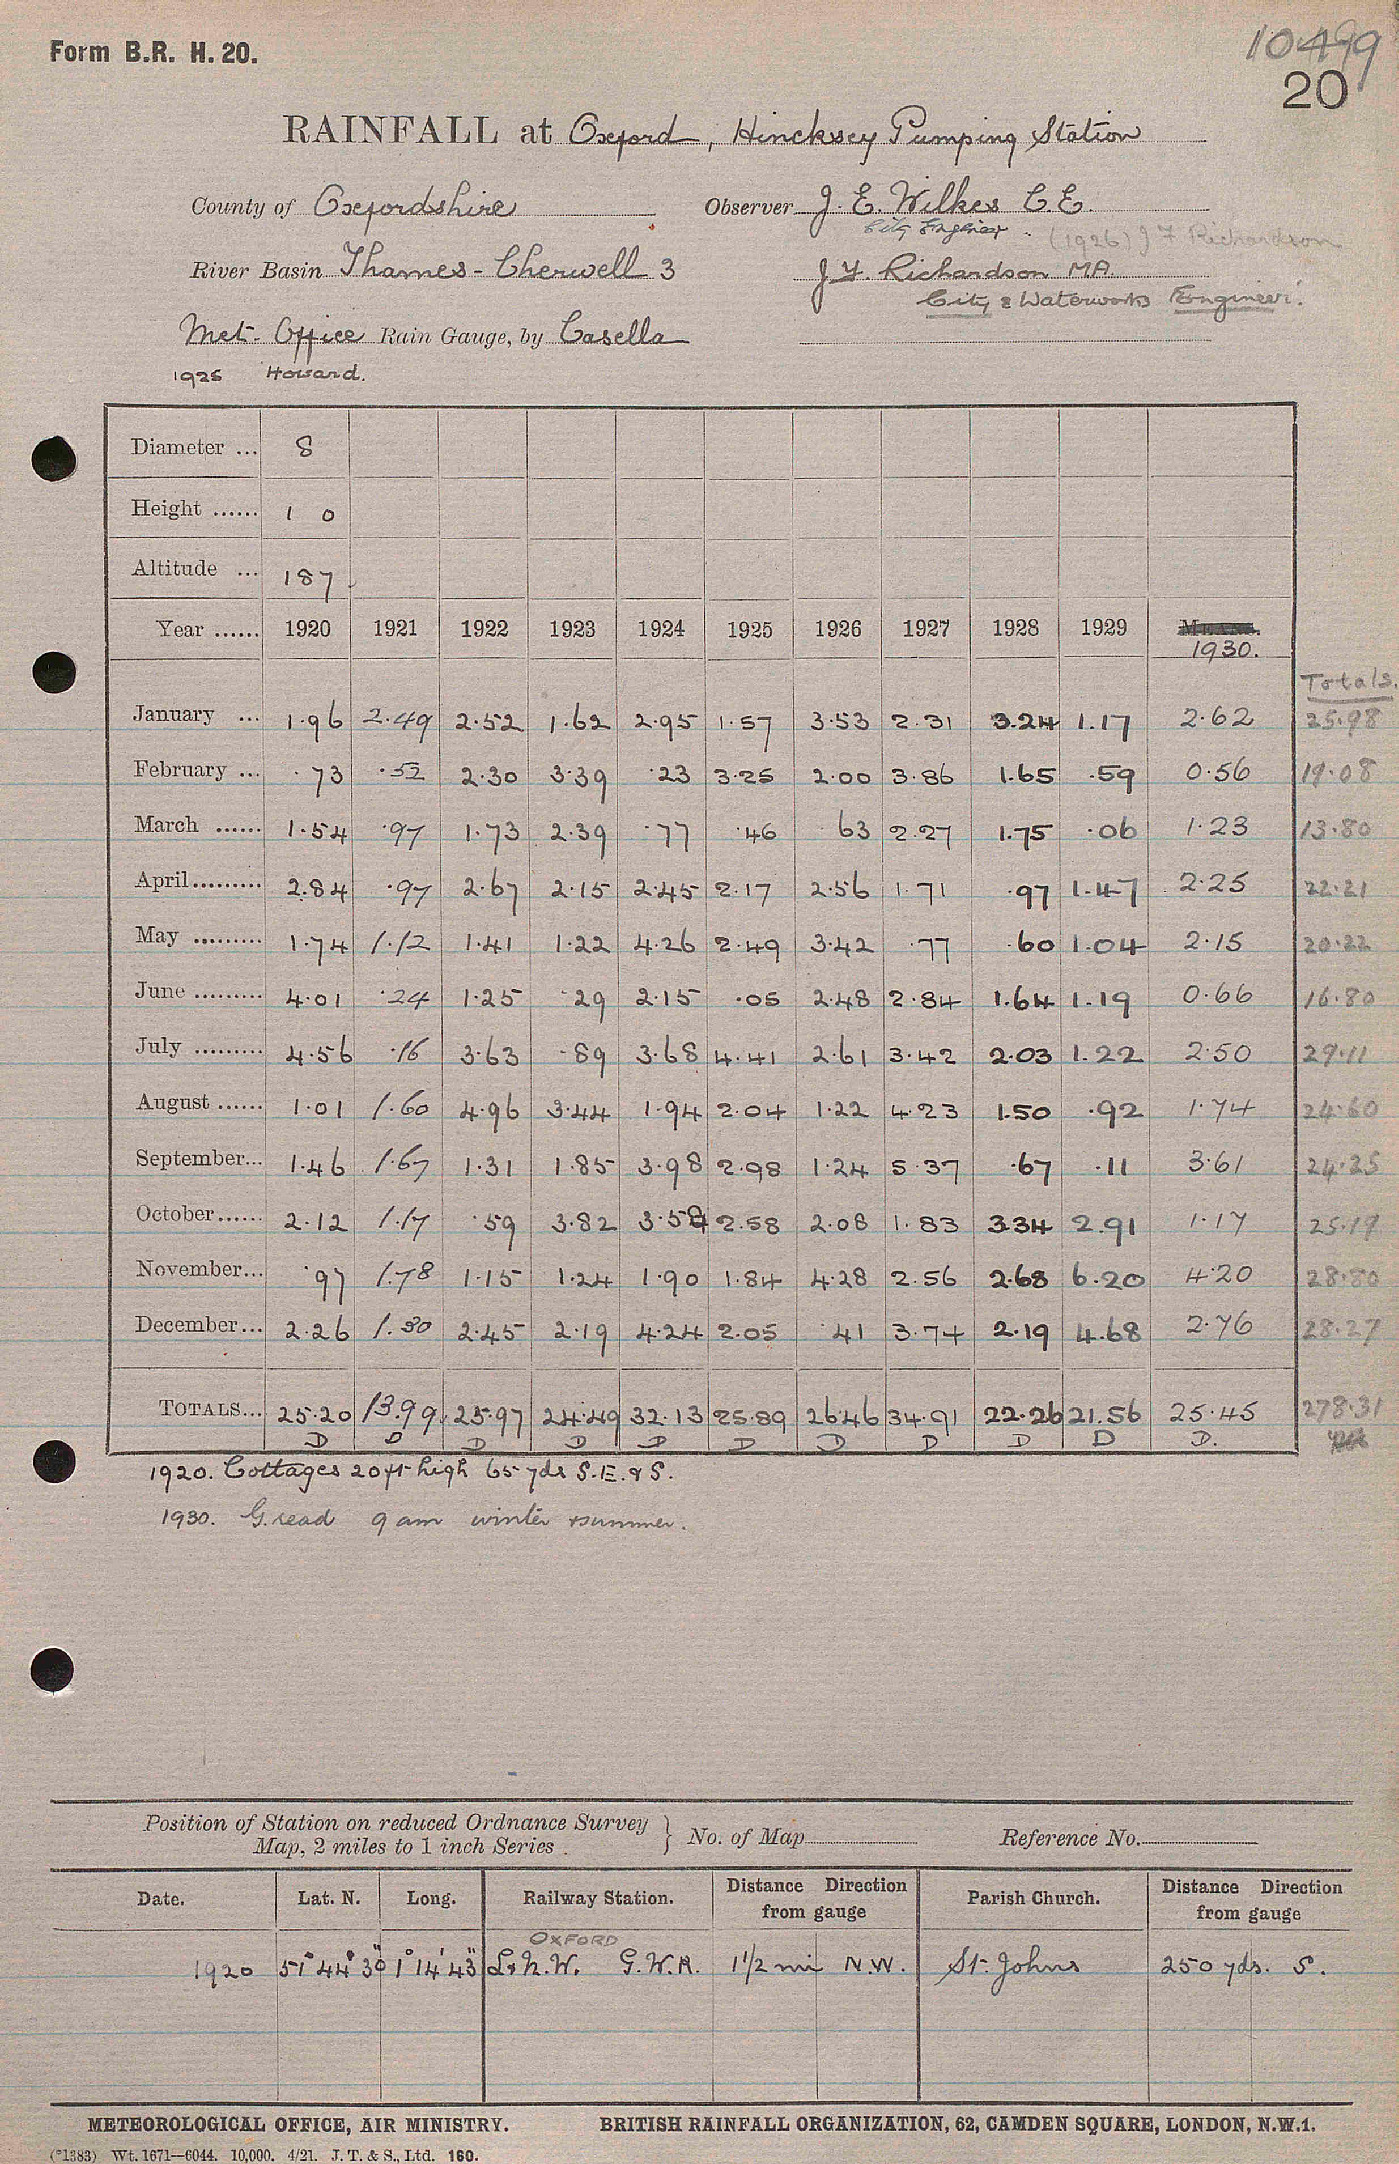 Form B.R. H. 20.
10499
20
RAINFALL at Oxford, Hincksey Pumping Station
County of Oxfordshire Observer J. E. Wilkes C.E.
City Engineer. (1926) J F Richardson
River Basin Thames - Cherwell 3 J. F. Richardson MA.
City & Waterworks Engineer.
Met. Office Rain Gauge, by Casella
1925 Howard.
Diameter ... 8
Height ...... 1 0
Altitude ... 187
Year ...... 1920 1921 1922 1923 1924 1925 1926 1927 1928 1929 1930.
Totals.
January ... 1.96 2.49 2.52 1.62 2.95 1.57 3.53 2.31 3.24 1.17 2.62 25.98
February ... .73 .52 2.30 3.39 .23 3.25 2.00 3.86 1.65 .59 0.56 19.08
March ...... 1.54 .97 1.73 2.39 .77 .46 63 2.27 1.75 .06 1.23 13.80
April......... 2.84 .97 2.67 2.15 2.45 2.17 2.56 1.71 .97 1.47 2.25 22.21
May ......... 1.74 1.12 1.41 1.22 4.26 2.49 3.42 .77 .60 1.04 2.15 20.22
June ......... 4.01 .24 1.25 .29 2.15 .05 2.48 2.84 1.64 1.19 0.66 16.80
July ......... 4.56 .16 3.63 .89 3.68 4.41 2.61 3.42 2.03 1.22 2.50 29.11
August ...... 1.01 1.60 4.96 3.44 1.94 2.04 1.22 4.23 1.50 .92 1.74 24.60
September... 1.46 1.67 1.31 1.85 3.98 2.98 1.24 5.37 .67 .11 3.61 24.25
October...... 2.12 1.17 .59 3.82 3.58 2.58 2.08 1.83 3.34 2.91 1.17 25.19
November... .97 1.78 1.15 1.24 1.90 1.84 4.28 2.56 2.68 6.20 4.20 28.80
December... 2.26 1.30 2.45 2.19 4.24 2.05 .41 3.74 2.19 4.68 2.76 28.27
TOTALS... 25.20 13.99 25.97 24.49 32.13 25.89 26.46 34.91 22.26 21.56 25.45 278.31
D D D D D D D D D D D.
1920. Cottages 20ft high 65 yds S.E. & S.
1930. G. read 9 am winter & summer.
Position of Station on reduced Ordnance Survey
Map, 2 miles to 1 inch Series. } No. of Map Reference No.
Date. Lat. N. Long. Railway Station. Distance Direction from gauge Parish Church. Distance Direction from gauge
OXFORD
1920 51° 44' 30" 1° 14' 43" L & N.W. G.W.R. 1 1/2 mi N.W. St. Johns 250 yds. S.
METEOROLOGICAL OFFICE, AIR MINISTRY. BRITISH RAINFALL ORGANIZATION, 62, CAMDEN SQUARE, LONDON, N.W.1.
(*1383) Wt. 1671—6044. 10,000. 4/21. J. T. & S., Ltd. 160.